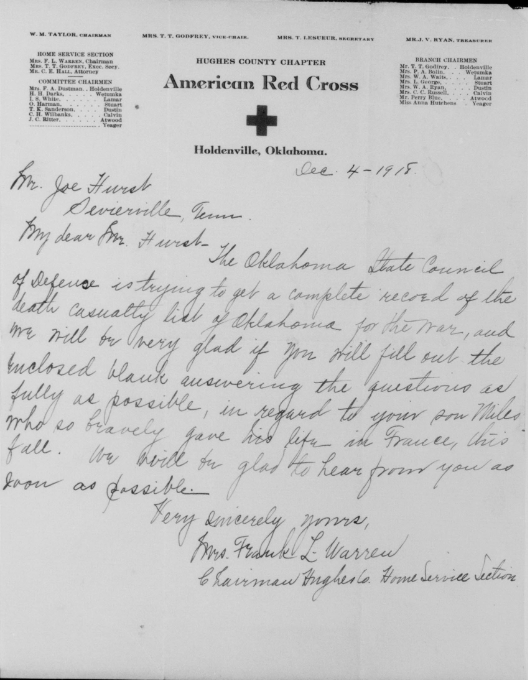 W. M. TAYLOR, CHAIRMAN MRS. T. T. GODFREY, VICE-CHAIR. MRS. T. LESUEUR, SECRETARY MR. J. V. RYAN, TREASURER
HOME SERVICE SECTION
MRS. F. L. WARREN, Chairman
MRS. T. T. GODFREY, Exec. Secy.
MR. C. E. HALL, Attorney
COMMITTEE CHAIRMEN
Mrs. F. A. Dustman. Holdenville
H. H. Darks. Wetumka
I. S. White. Lamar
O. Harman. Stuart
T. K. Sanderson. Dustin
C. H. Wilbanks. Calvin
J. C. Ritter. Atwood
Yeager
HUGHES COUNTY CHAPTER
American Red Cross
Holdenville, Oklahoma.
BRANCH CHAIRMEN
Mr. T. T. Godfrey. Holdenville
Mrs. P. A. Bolin. Wetumka
Mrs. W. A. Waite. Lamar
Mrs. L. George. Stuart
Mrs. W. A. Ryan. Dustin
Mrs. C. C. Russell. Calvin
Mr. Perry Rine. Atwood
Miss Anna Hutchens. Yeager
Dec. 4-1918.
Mr. Joe Hurst
Sevierville, Tenn.
My dear Mr. Hurst-
The Oklahoma State Council
of Defense is trying to get a complete record of the
death casualty list of Oklahoma for the war, and
we will be very glad if you will fill out the
enclosed blank answering the questions as
fully as possible, in regard to your son Miles
who so bravely gave his life in France, this
fall. We will be glad to hear from you as
soon as possible.
Very sincerely yours,
Mrs. Frank L. Warren
Chairman Hughes Co. Home Service Section